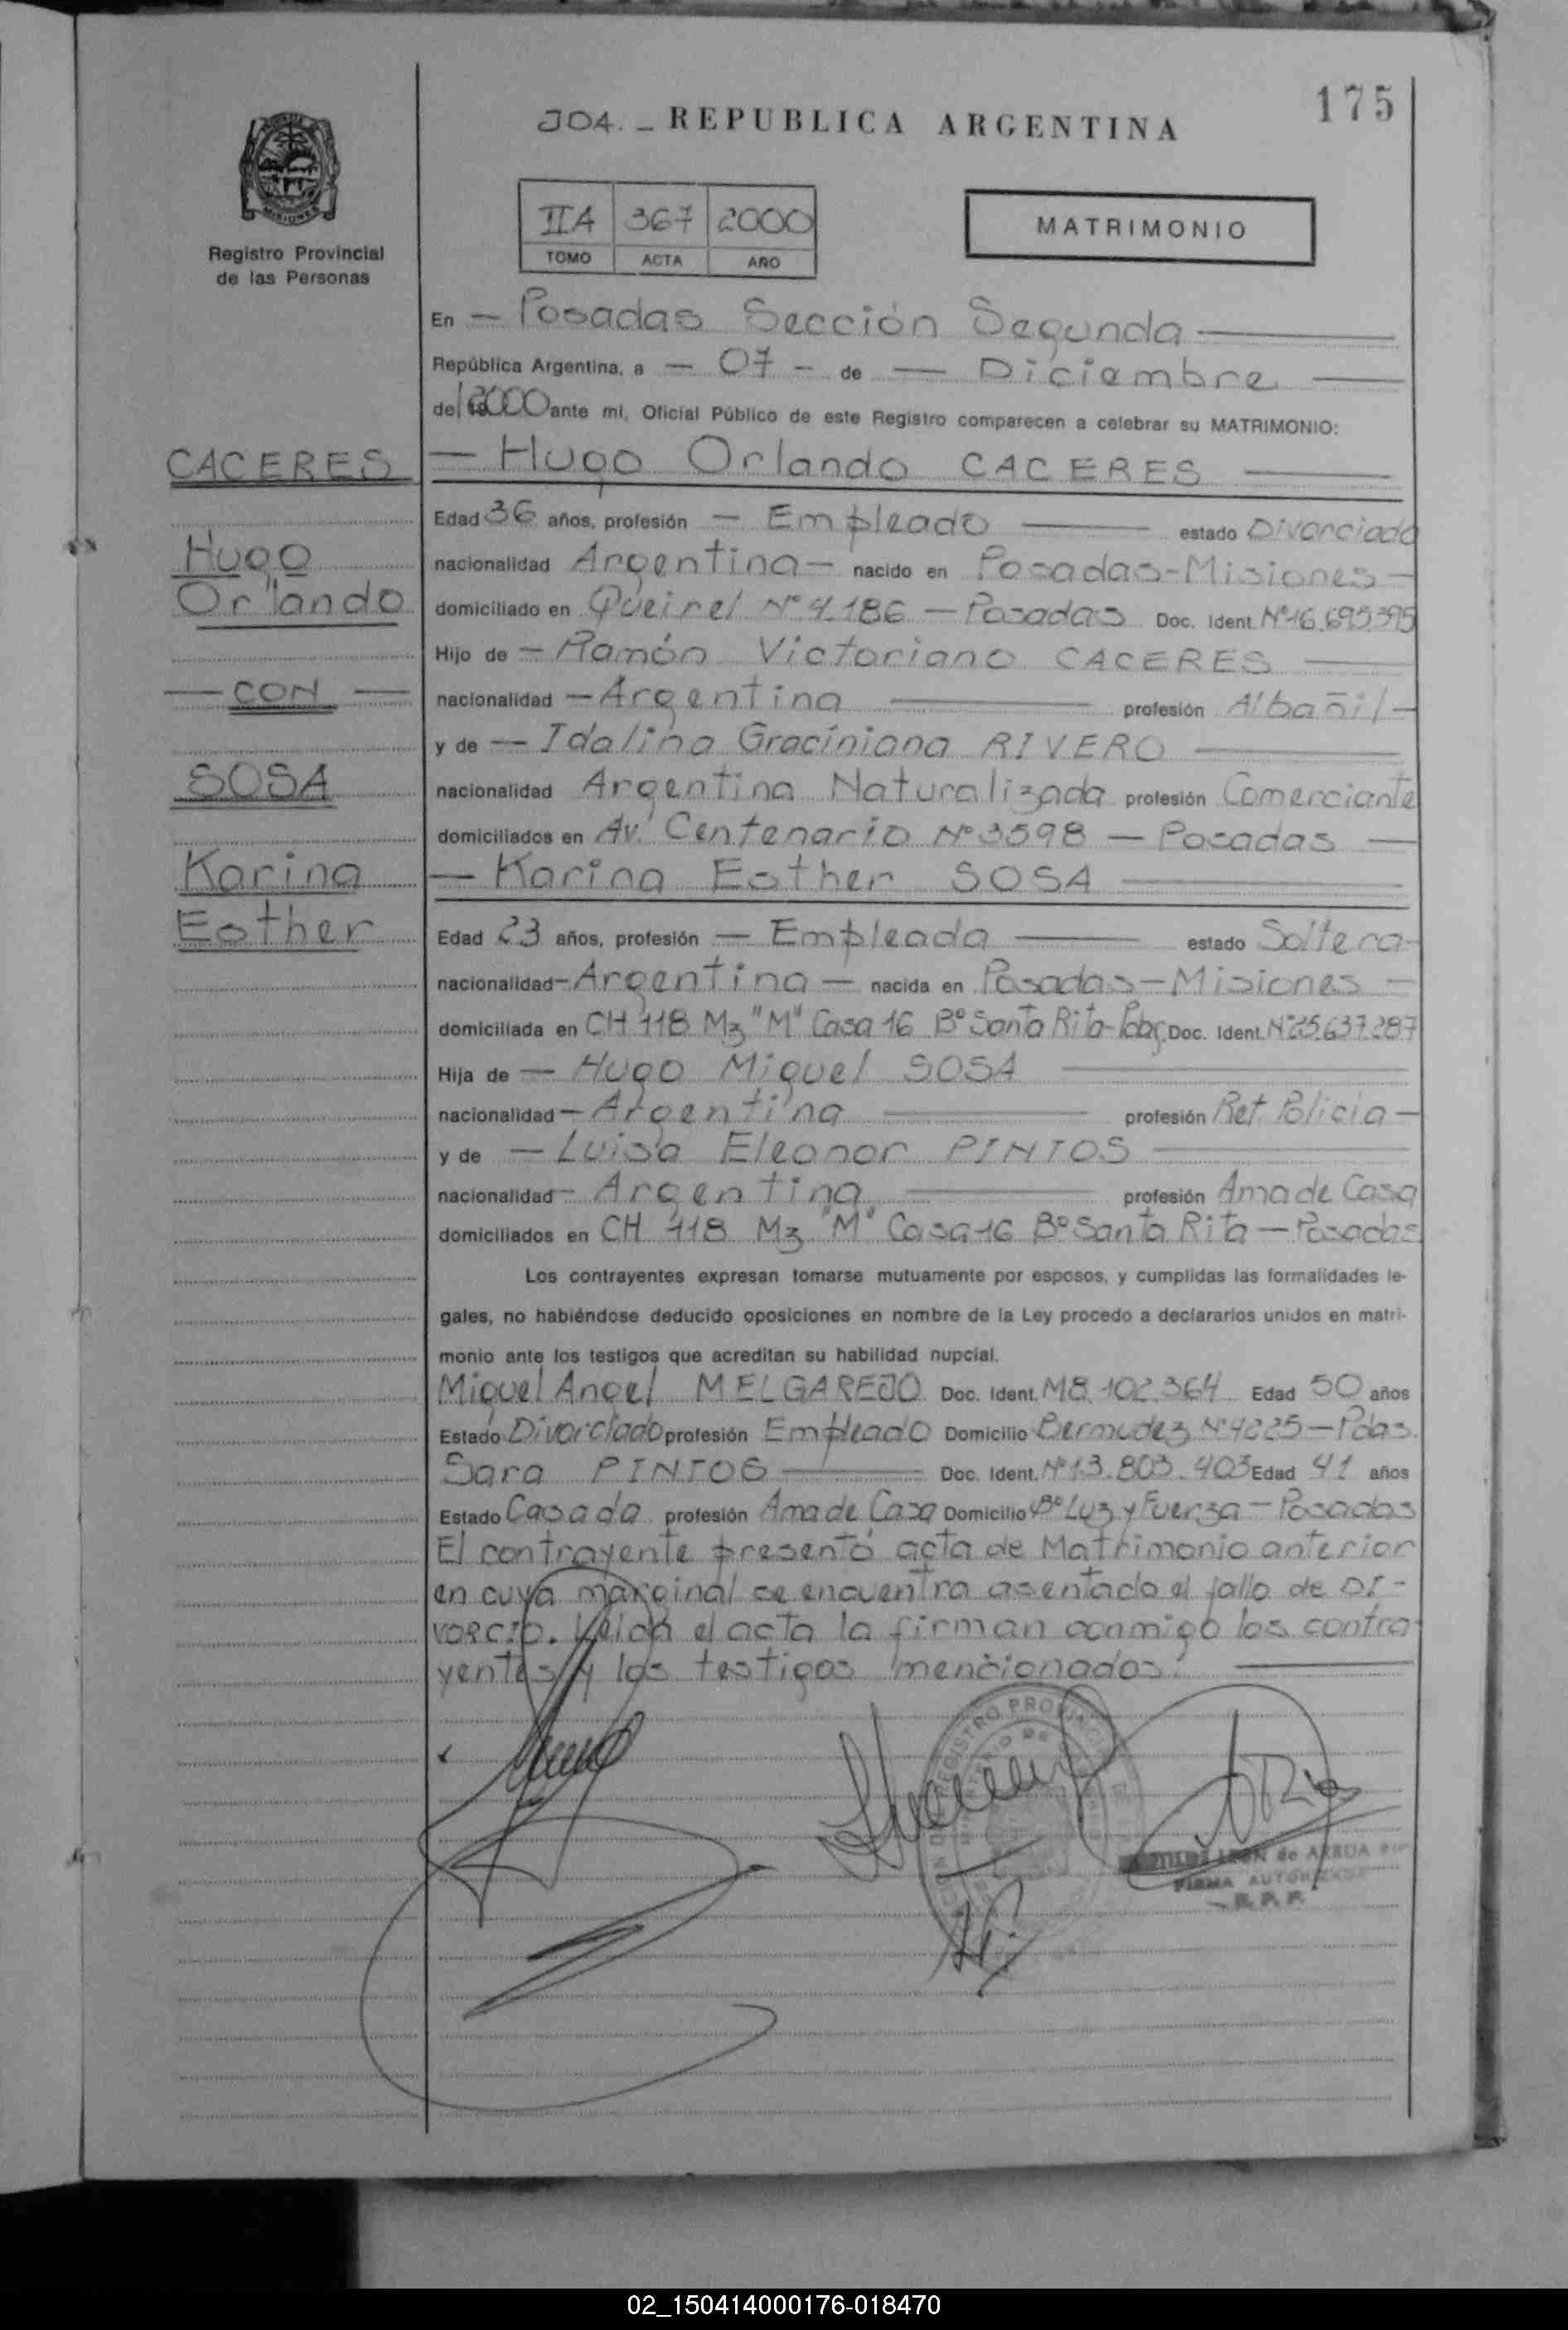 175
JO4. - REPUBLICA ARGENTINA
IIA 367 2000
TOMO ACTA AÑO
MATRIMONIO
MISIONES
Registro Provincial
de las Personas
En — Posadas Sección Segunda
República Argentina, a — 07 — de — Diciembre
del 2000 ante mí, Oficial Público de este Registro comparecen a celebrar su MATRIMONIO:
CACERES
— Hugo Orlando CACERES
Edad 36 años, profesión — Empleado estado Divorciado
Hugo
nacionalidad Argentina — nacido en Posadas-Misiones —
Orlando
domiciliado en Queirel Nº 4.186 — Posadas Doc. Ident. Nº 16.695.395
Hijo de — Ramón Victoriano CACERES
— CON —
nacionalidad — Argentina profesión Albañil —
y de — Idalina Graciniana RIVERO
SOSA
nacionalidad Argentina Naturalizada profesión Comerciante
domiciliados en Av. Centenario Nº 3598 — Posadas —
Karina
— Karina Esther SOSA
Esther
Edad 23 años, profesión — Empleada estado Soltera
nacionalidad — Argentina — nacida en Posadas — Misiones —
domiciliada en CH 118 Mz "M" Casa 16 Bº Santa Rita - Doc. Ident. Nº 25.637.287
Hija de — Hugo Miguel SOSA
nacionalidad — Argentina profesión Ret. Policia —
y de — Luisa Eleonor PINTOS
nacionalidad — Argentina profesión Ama de Casa
domiciliados en CH 118 Mz "M" Casa 16 Bº Santa Rita — Posadas
Los contrayentes expresan tomarse mutuamente por esposos, y cumplidas las formalidades le-
gales, no habiéndose deducido oposiciones en nombre de la Ley procedo a declararlos unidos en matri-
monio ante los testigos que acreditan su habilidad nupcial.
Miguel Angel MELGAREJO Doc. Ident. M8.102.364 Edad 50 años
Estado Divorciado profesión Empleado Domicilio Bermudez Nº 4225 — Pdas.
Sara PINTOS Doc. Ident. Nº 13.803.403 Edad 41 años
Estado Casada profesión Ama de Casa Domicilio Bº Luz y Fuerza — Posadas
El contrayente presentó acta de Matrimonio anterior
en cuya marginal se encuentra asentado el fallo de DI-
VORCIO. Leida el acta la firman conmigo los contra
yentes y los testigos mencionados.
REGISTRO PROVINCI
LEON de ARRUA
FIRMA AUTORIZADA
R. P. P.
02_150414000176-018470